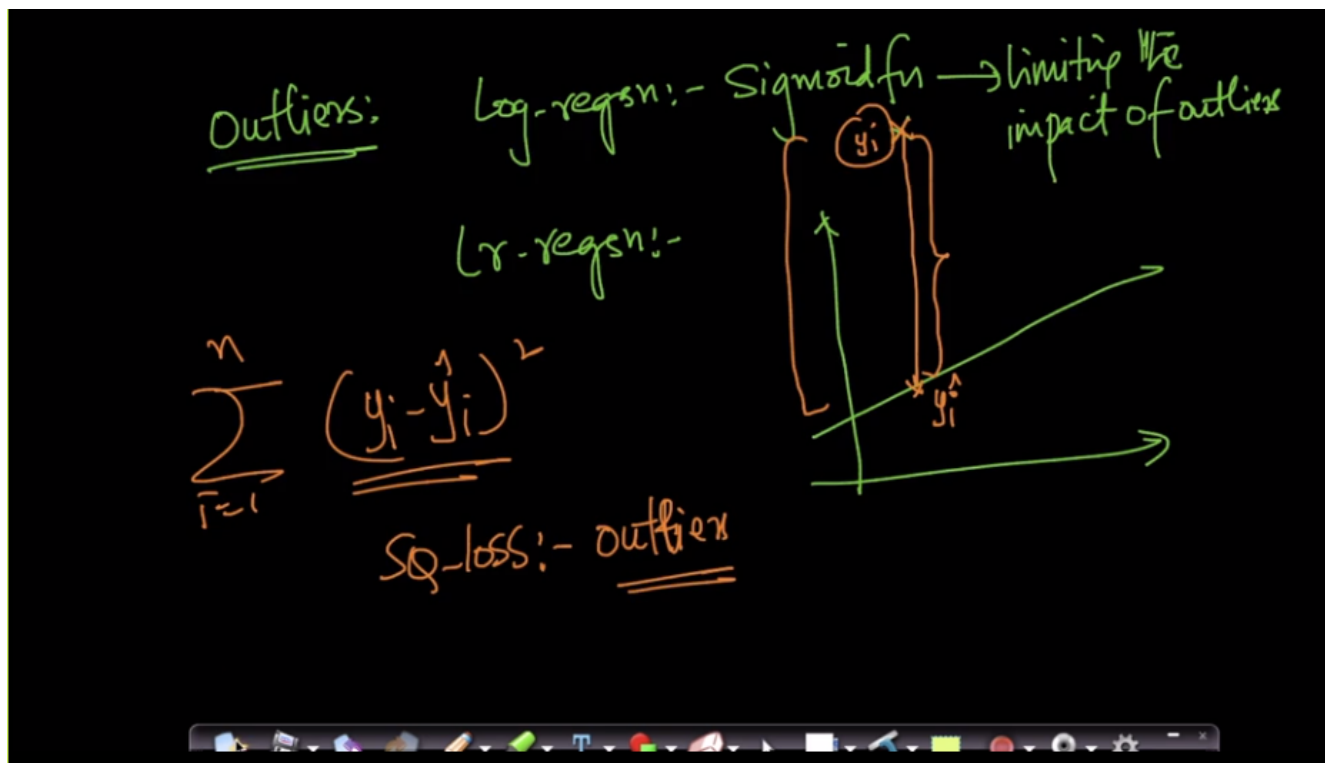 Outliers: Log-regsn:- Sigmoid fn → limiting the
impact of outliers
yi
Lr-regsn:-
n
∑ (yi - ŷi)²
i=1
ŷi
SQ-loss:- outlier
T